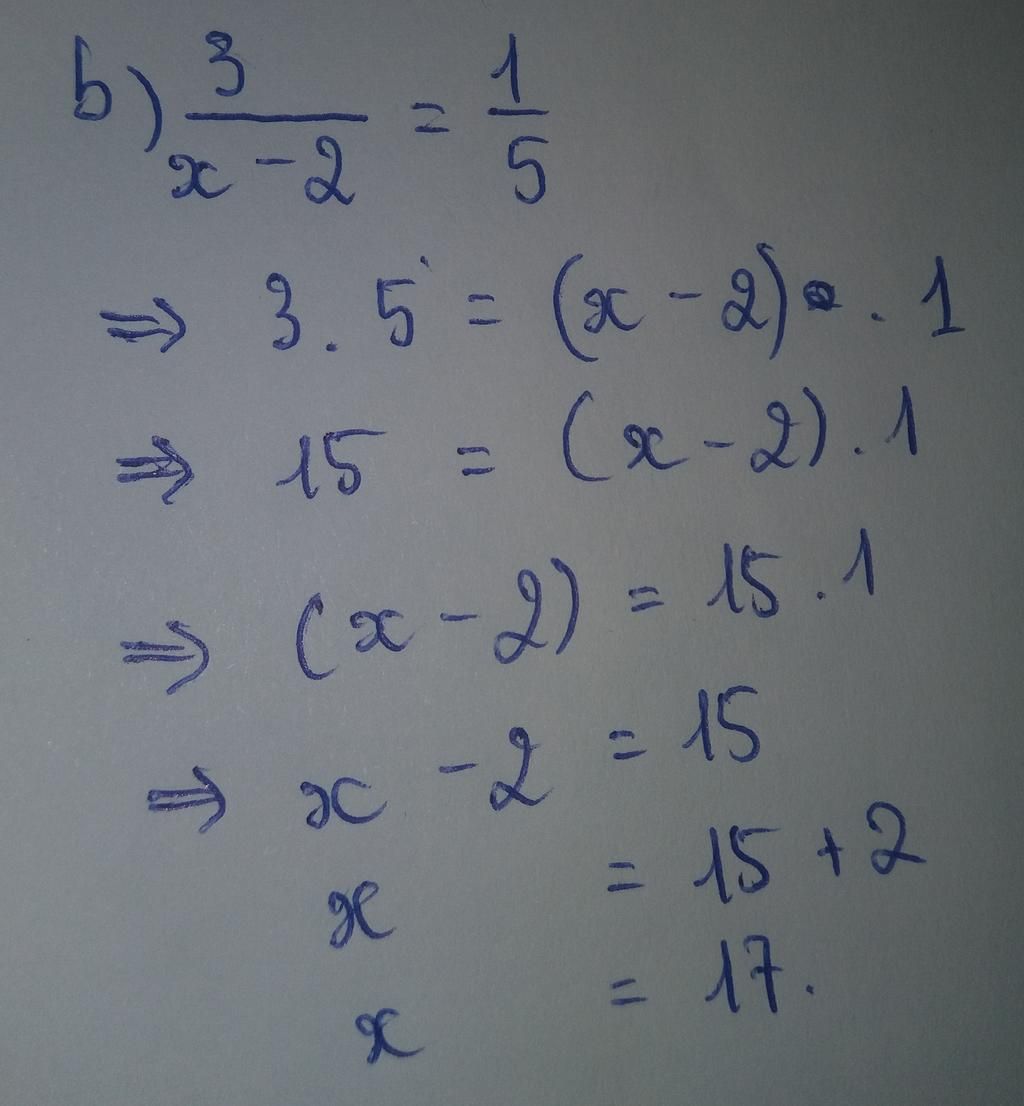 b) 3/(x - 2) = 1/5
⇒ 3 . 5 = (x - 2) . 1
⇒ 15 = (x - 2) . 1
⇒ (x - 2) = 15 . 1
⇒ x - 2 = 15
x = 15 + 2
x = 17.